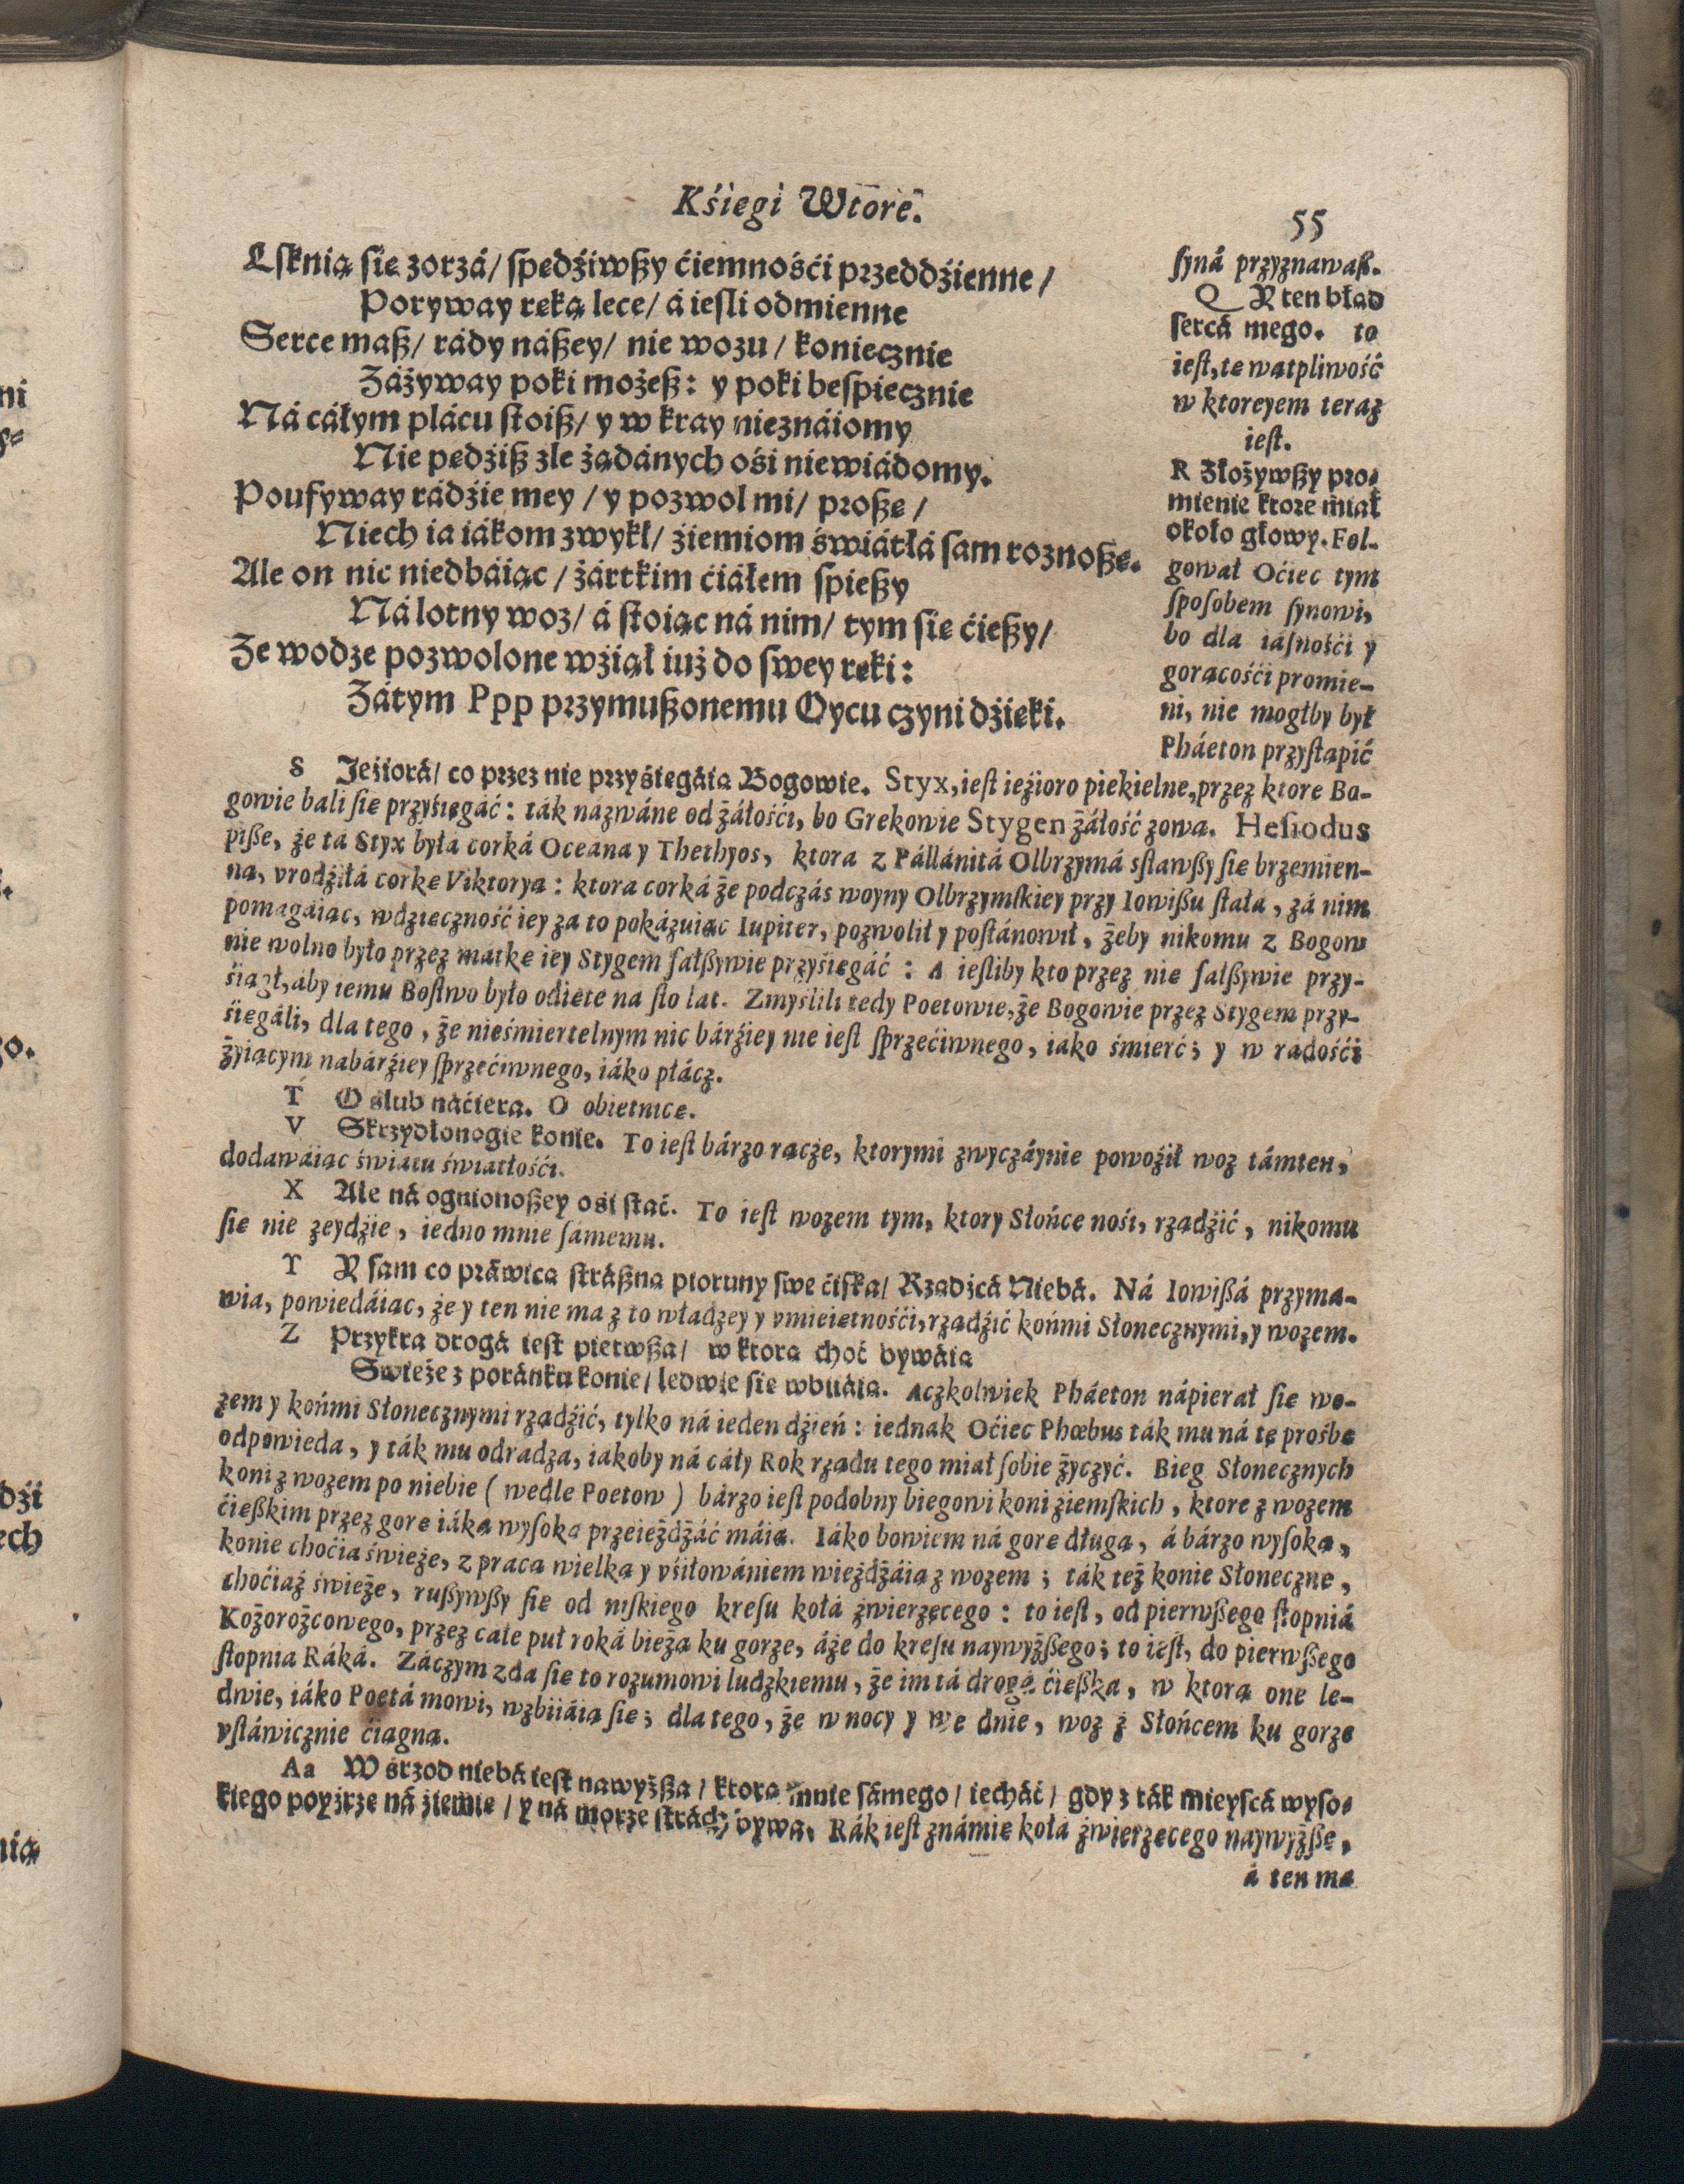 Kśięgi Wtore.
55
Lſknią ſię zorzá/ ſpędźiwßy ćiemnośći przeddźienne/
Poryway ręką lece/ á ieſli odmienne
Serce maß/ rády náßey/ nie wozu/ koniecznie
Záżyway poki możeß: y poki beſpiecznie
Ná cáłym plácu ſtoiß/ y w kray nieznáiomy
Nie pędźiß zle żądánych ośi niewiádomy.
Poufyway rádźie mey/ y pozwol mi/ proßę/
Niech ia iákom zwykł/ źiemiom świátłá ſam roznoßę.
Ale on nic niedbáiąc/ żártkim ćiáłem ſpießy
Ná lotny woz/ á ſtoiąc ná nim/ tym ſię ćießy/
Ze wodze pozwolone wźiął iuż do ſwey ręki:
Zátym Ppp przymußonemu Oycu czyni dźięki.
ſyná przyznawaß.
Q Y ten błąd
ſercá mego. to
ieſt, tę wątpliwość
w ktoreyem teraz
ieſt.
R Złożywßy pro-
mienie ktore miał
około głowy. Fol-
gował Oćiec tym
ſpoſobem ſynowi,
bo dla iáſnośći y
gorącośći promie-
ni, nie mogłby był
Pháeton przyſtąpić
S Jeźiorá/ co przez nie przyśięgáią Bogowie. Styx, ieſt ieźioro piekielne, przez ktore Bo-
gowie bali ſie przyśięgáć: ták názwáne od żáłośći, bo Grekowie Stygen żáłość zową. Heſiodus
piße, że tá Styx byłá corką Oceaná y Thethyos, ktora z Pállánitá Olbrzymá zſtawßy ſie brzemien-
na, vrodźiłá corkę Viktoryą: ktora corká że podczás woyny Olbrzymſkiey przy Iowißu ſtała, zá nim
pomagáiąc, wdzięczność iey za to pokázuiąc Iupiter, pozwolił y poſtánowił, żeby nikomu z Bogow
nie wolno było przez mátkę iey Stygem fałßywie przyśięgáć: A ieſliby kto przez nię fałßywie przy-
śiągł, aby iemu Boſtwo było odięte na ſto lat. Zmyślili tedy Poetowie, że Bogowie przez Stygem przy-
śięgáli, dla tego, że nieśmiertelnym nic bárźiey nie ieſt ſprzećiwnego, iáko śmierć; y w rádośći
żyiącym nabárźiey ſprzećiwnego, iáko płácz.
T O ślub náćiera. O obietnicę.
V Skrzydłonogie konie. To ieſt bárzo rącze, ktorymi zwyczáynie powoźił woz támten,
dodawáiąc świátu świátłośći.
X Ale ná ognionoßey ośi ſtać. To ieſt wozem tym, ktory Słońce nośi, rządźić, nikomu
ſie nie zeydźie, iedno mnie ſámemu.
Y Y ſam co práwicą ſtráßną pioruny ſwe ćiſka/ Rządźcá Niebá. Ná Iowißá przyma-
wia, powiedáiąc, że y ten nie ma z to władzey y vmieiętnośći, rządźić końmi Słonecznymi, y wozem.
Z Przykra drogá ieſt pierwßa/ w ktorą choć bywáią
Swieże z poránku konie/ ledwie ſię wbiiáią. Aczkolwiek Pháeton nápierał ſie wo-
zem y końmi Słonecznymi rządźić, tylko ná ieden dźień: iednak Oćiec Phœbus ták mu ná tę proźbę
odpowieda, y ták mu odradza, iakoby ná cáły Rok rządu tego miał ſobie życzyć. Bieg Słonecznych
koni z wozem po niebie (wedle Poetow) bárzo ieſt podobny biegowi koni źiemſkich, ktore z wozem
ćięßkim przez gorę iáką wyſoką przeieżdżáć máią. Iáko bowiem ná gorę długą, á bárzo wyſoką,
konie choćia świeże, z pracą wielką y vśiłowániem wieżdżáią z wozem; ták też konie Słoneczne,
choćiaż świeże, rußywßy ſie od niſkiego kreſu kołá źwierzęcego: to ieſt, od pierwßego ſtopniá
Koźorożcowego, przez całe puł roká bieżą ku gorze, áże do kreſu naywyżßego; to ieſt, do pierwßego
ſtopnia Ráká. Záczym zda ſie to rozumowi ludzkiemu, że im tá drogá ćięßka, w ktorą one le-
dwie, iáko Poëtá mowi, wzbiiáią ſie; dla tego, że w nocy y we dnie, woz z Słońcem ku gorze
vſtáwicznie ćiągną.
Aa W śrzod niebá ieſt nawyżßa/ ktorą mnie ſámego/ iecháć/ gdy z ták mieyſcá wyſo-
kiego poyźrzę ná źiemię/ y ná morze ſtrách bywa. Rák ieſt známię kołá źwierzęcego naywyżße,
á ten ma